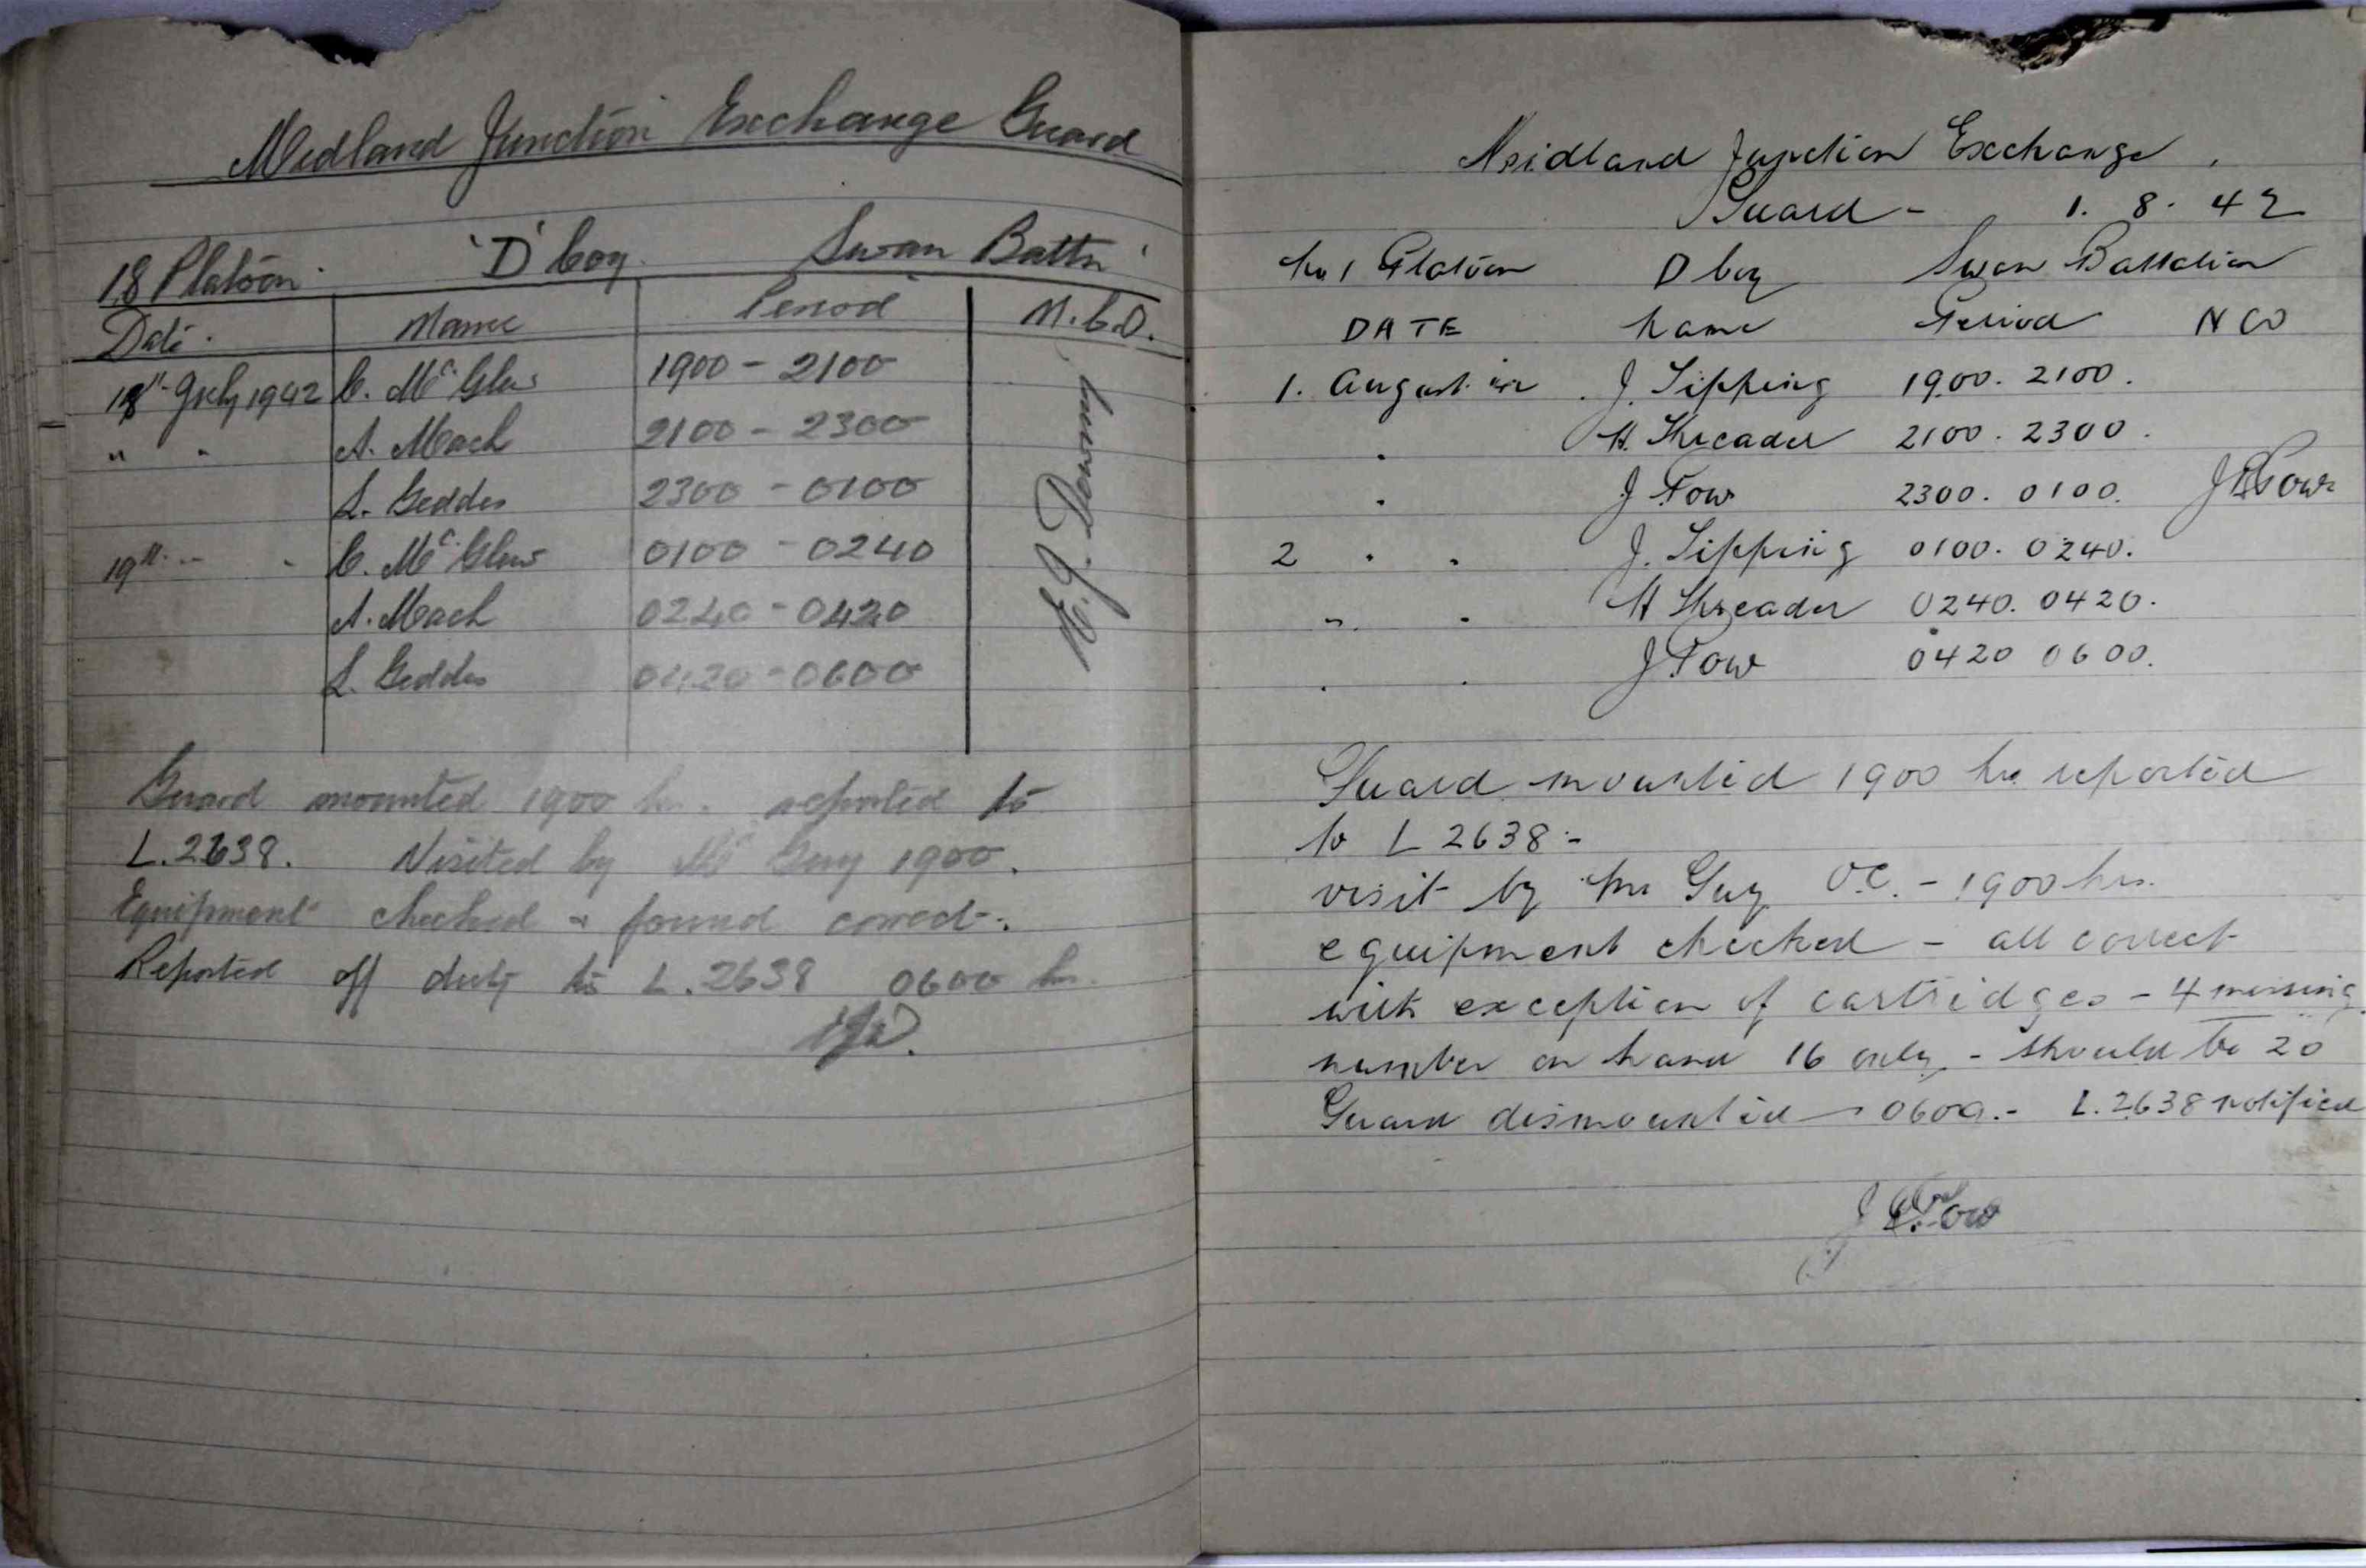 Midland Junction Exchange Guard
18 Platoon. 'D' Coy. Swan Battn.
Date. Name Period N.C.O.
18th July 1942 C. McGlew 1900 - 2100
" " A. Mach 2100 - 2300
L. Geddes 2300 - 0100
19th " " C. McGlew 0100 - 0240
A. Mach 0240 - 0420
L. Geddes 0420 - 0600
Guard mounted 1900 hr. reported to
L.2638. Visited by Mr Guy 1900.
Equipment checked & found correct.
Reported off duty to L.2638 0600 hr.
Midland Junction Exchange
Guard - 1. 8. 42
No 1 Platoon D Coy Swan Battalion
DATE Name Period NCO
1. August J. Tipping 1900. 2100.
" H. Threader 2100. 2300.
" J Pow 2300. 0100. J Pow
2 " " J. Tipping 0100. 0240.
" " H Threader 0240. 0420.
" " J Pow 0420 0600.
Guard mounted 1900 hrs reported
to L 2638 :-
visit by Mr Guy O.C. - 1900 hrs.
equipment checked - all correct
with exception of cartridges - 4 missing
number on hand 16 only - should be 20
Guard dismounted - 0600. - L.2638 notified
J Pow